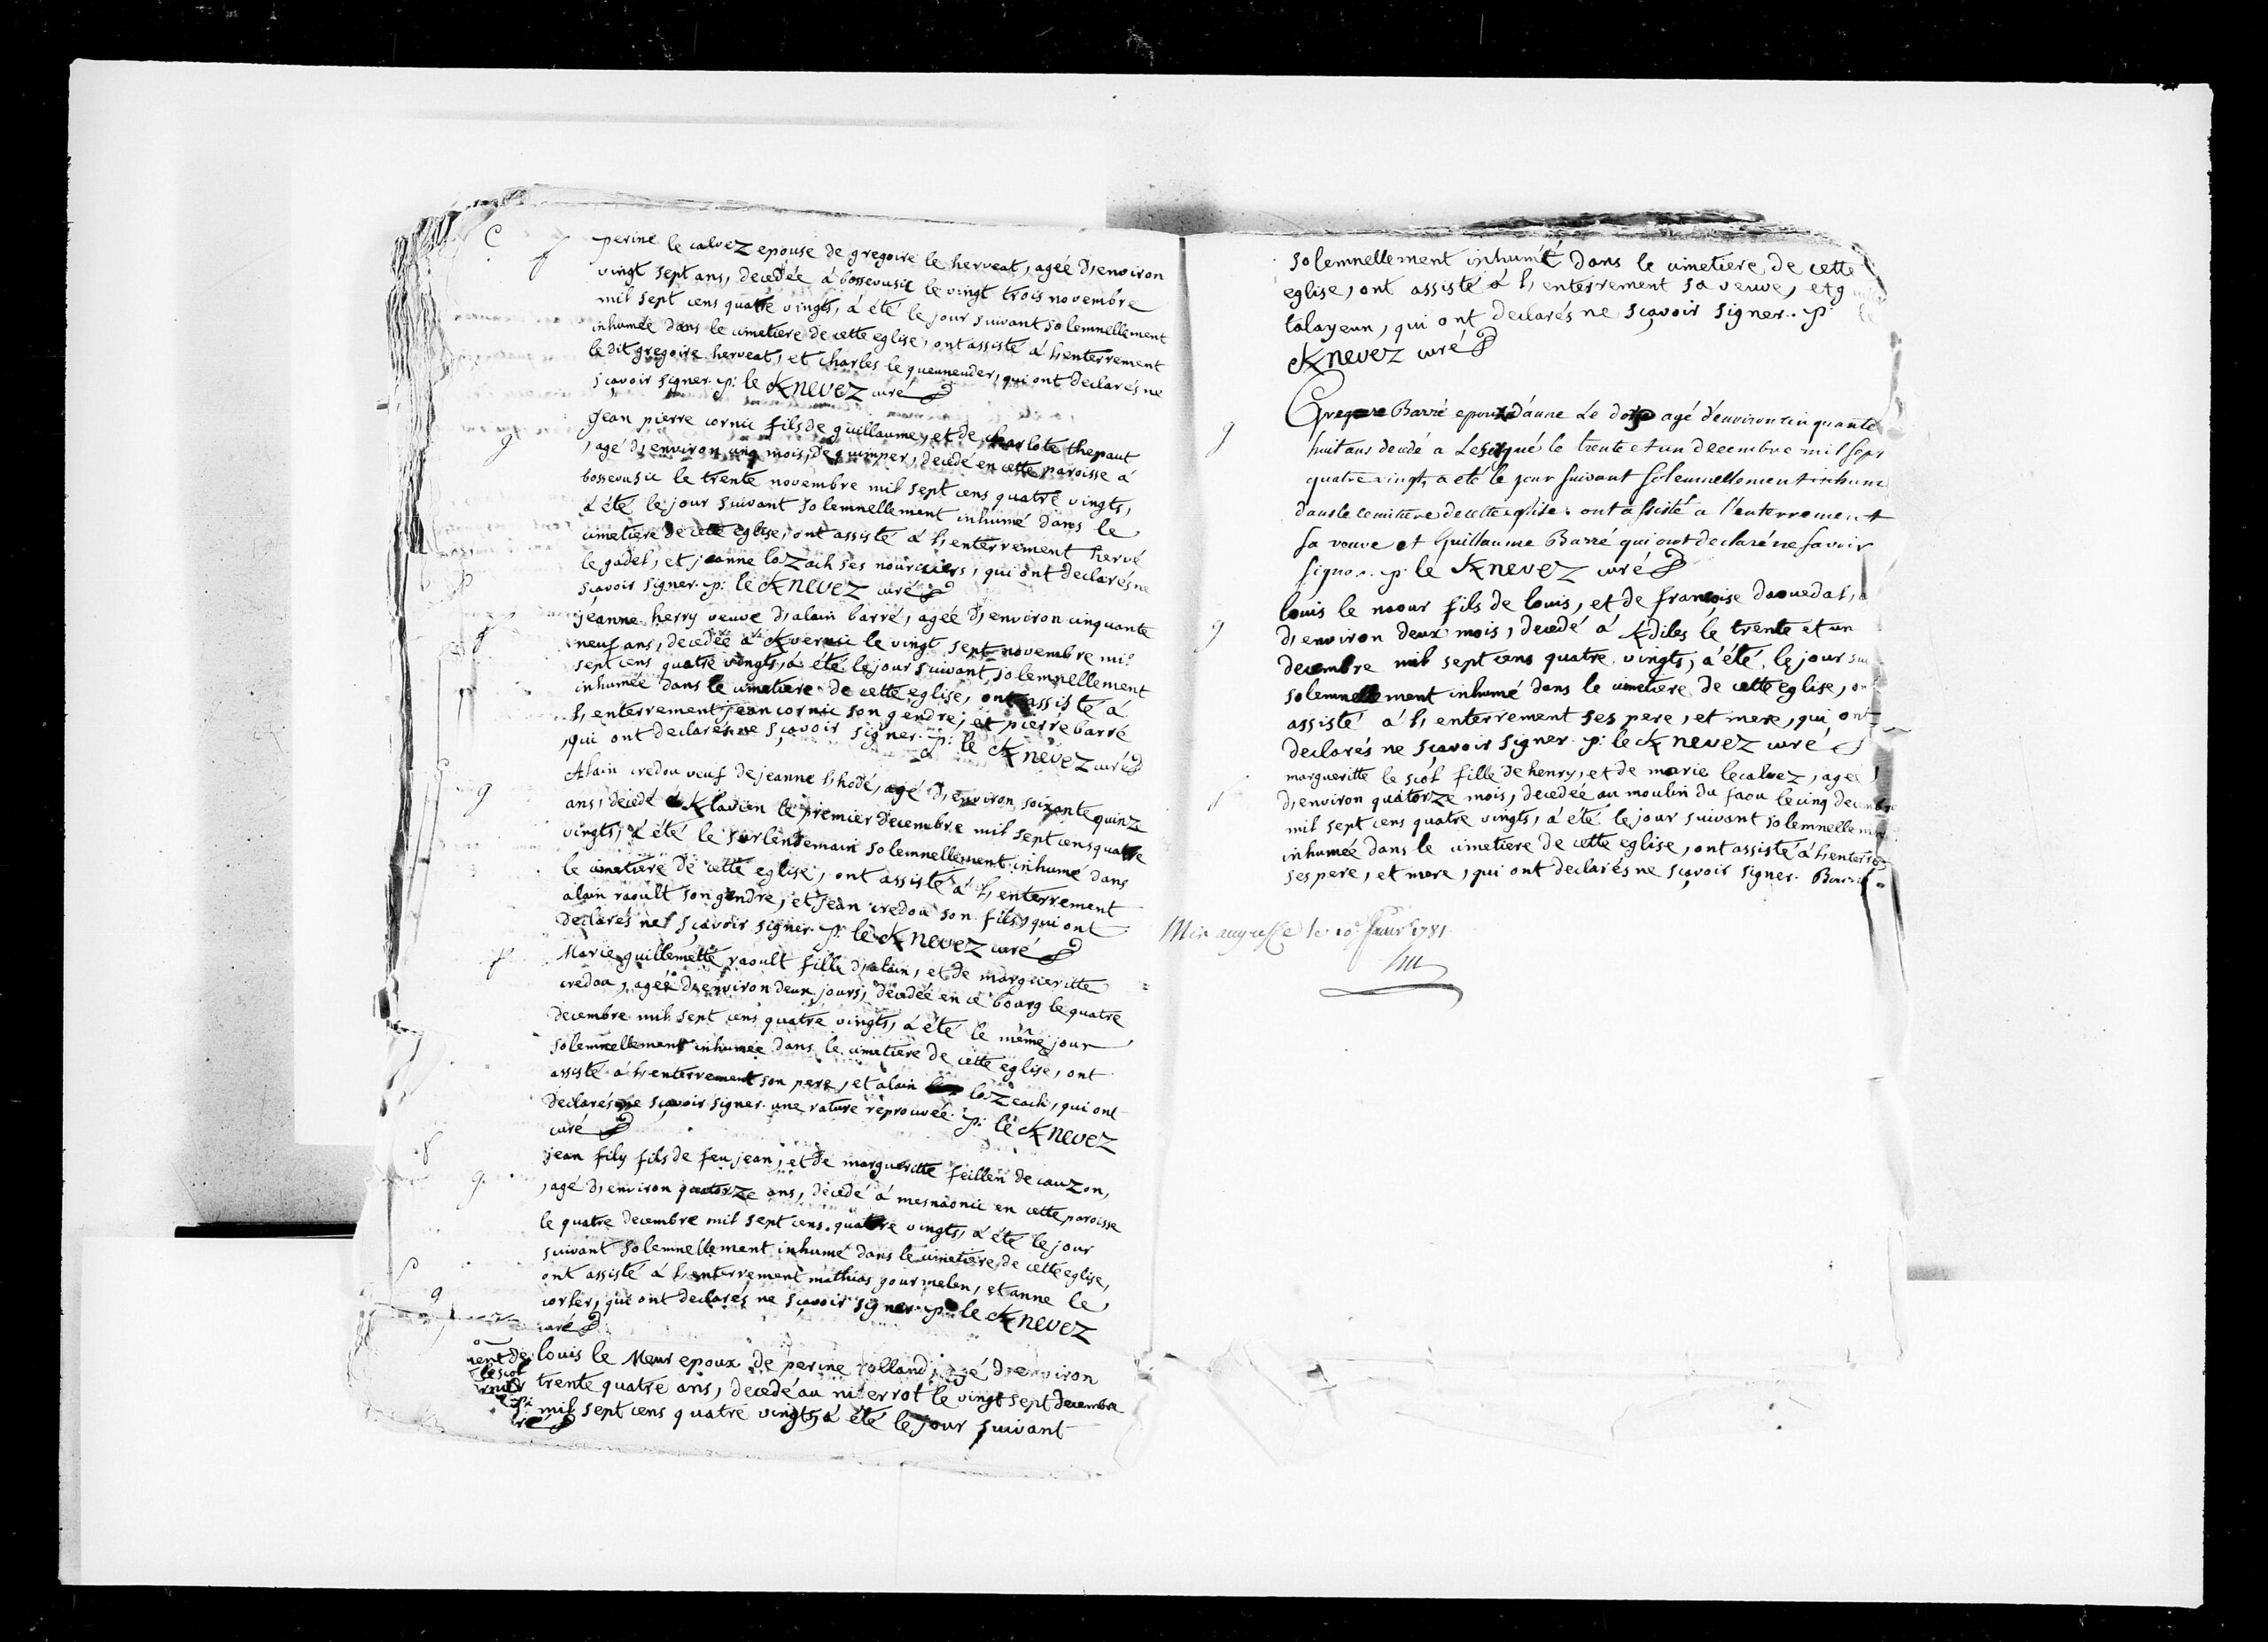 perine le calvez epouse de gregoire le herveat, ageé d'environ
vingt sept ans, decedée à bossevusic le vingt trois novembre
mil sept cens quatre vingts, à été le jour suivant solemnellement
inhumée dans le cimetiere de cette eglise, ont assisté à l'enterrement
ledit gregoire herveat, et charles le queneuder, qui ont declarés ne
sçavoir signer. p: le Knevez curé
g jean pierre cornic fils de guillaume, et de charlote thepaut
, agé d'environ cinq mois, de quimper, decedé en cette paroisse à
bossevusic le trente novembre mil sept cens quatre vingts,
à été le jour suivant solemnellement inhumé dans le
cimetiere de cette eglise, ont assisté à l'enterrement hervé
le gadel, et jeanne lozach ses nourciers, qui ont declarés ne
sçavoir signer. p: le Knevez curé
jeanne herry veuve d'alain barré, ageé d'environ cinquante
neuf ans, decedée à Kvernic le vingt sept novembre mil
sept cens quatre vingts, à été le jour suivant solemnellement
inhumée dans le cimetiere de cette eglise, ont assisté à
l'enterrement jean cornic son gendre, et pierre barré
, qui ont declarés ne sçavoir signer. p: le Knevez curé
g Alain credou veuf de jeanne l'hodé, agé d'environ soixante quinze
ans, decedé à Klavien le premier decembre mil sept cens quatre
vingts, à été le surlendemain solemnellement inhumé dans
le cimetiere de cette eglise, ont assisté à l'enterrement
alain raoult son gendre, et jean credou son fils, qui ont
declarés ne sçavoir signer. p: le Knevez curé
f Marie guillemette raoult fille d'alain, et de margueritte
credou, ageé d'environ deux jours, decedée en ce bourg le quatre
decembre mil sept cens quatre vingts, à été le même jour
solemnellement inhumée dans le cimetiere de cette eglise, ont
assisté à l'enterrement son pere, et alain lozeach, qui ont
declarés ne sçavoir signer. une rature reprouvée. p: le Knevez
curé
g. jean fily fils de feu jean, et de margueritte feillen de cauzon,
, agé d'environ quatorze ans, decedé à mesnaonic en cette paroisse
le quatre decembre mil sept cens quatre vingts, à été le jour
suivant solemnellement inhumé dans le cimetiere de cette eglise,
ont assisté à l'enterrement mathias gourmelen, et anne le
corler, qui ont declarés ne sçavoir signer. p: le Knevez
curé
louis le Meur epoux de perine rolland, agé d'environ
trente quatre ans, decedé au niverrot le vingt sept decembre
mil sept cens quatre vingts, à été le jour suivant
solemnellement inhumé dans le cimetiere de cette
eglise, ont assisté à l'enterrement sa veuve, et g
talayeun, qui ont declarés ne sçavoir signer. p: le
Knevez curé
g Gregoire Barré epoux d'anne Le agé d'environ cinquante
huit ans decedé a le trente et un decembre mil sept
quatre vingt, a eté le jour suivant solennellement inhumé
dans le cemitiere de cette eglise. ont assisté a l'enterrement
sa veuve et Guillaume Barré qui ont declaré ne savoir
signer. p: le Knevez curé
g louis le naour fils de louis, et de françoise daouedal,
d'environ deux mois, decedé à Kdiles le trente et un
decembre mil sept cens quatre vingts, à été le jour
solemnellement inhumé dans le cimetiere de cette eglise, ont
assisté à l'enterrement ses pere, et mere, qui ont
declarés ne sçavoir signer. p: le Knevez curé
margueritte le scol fille de henry, et de marie le calvez, ageé
d'environ quatorze mois, decedée au moulin du faou le cinq decembre
mil sept cens quatre vingts, à été le jour suivant solemnellement
inhumée dans le cimetiere de cette eglise, ont assisté à l'enterre
ses pere, et mere, qui ont declarés ne sçavoir signer.
Mis au greffe le 10e Janvr 1781